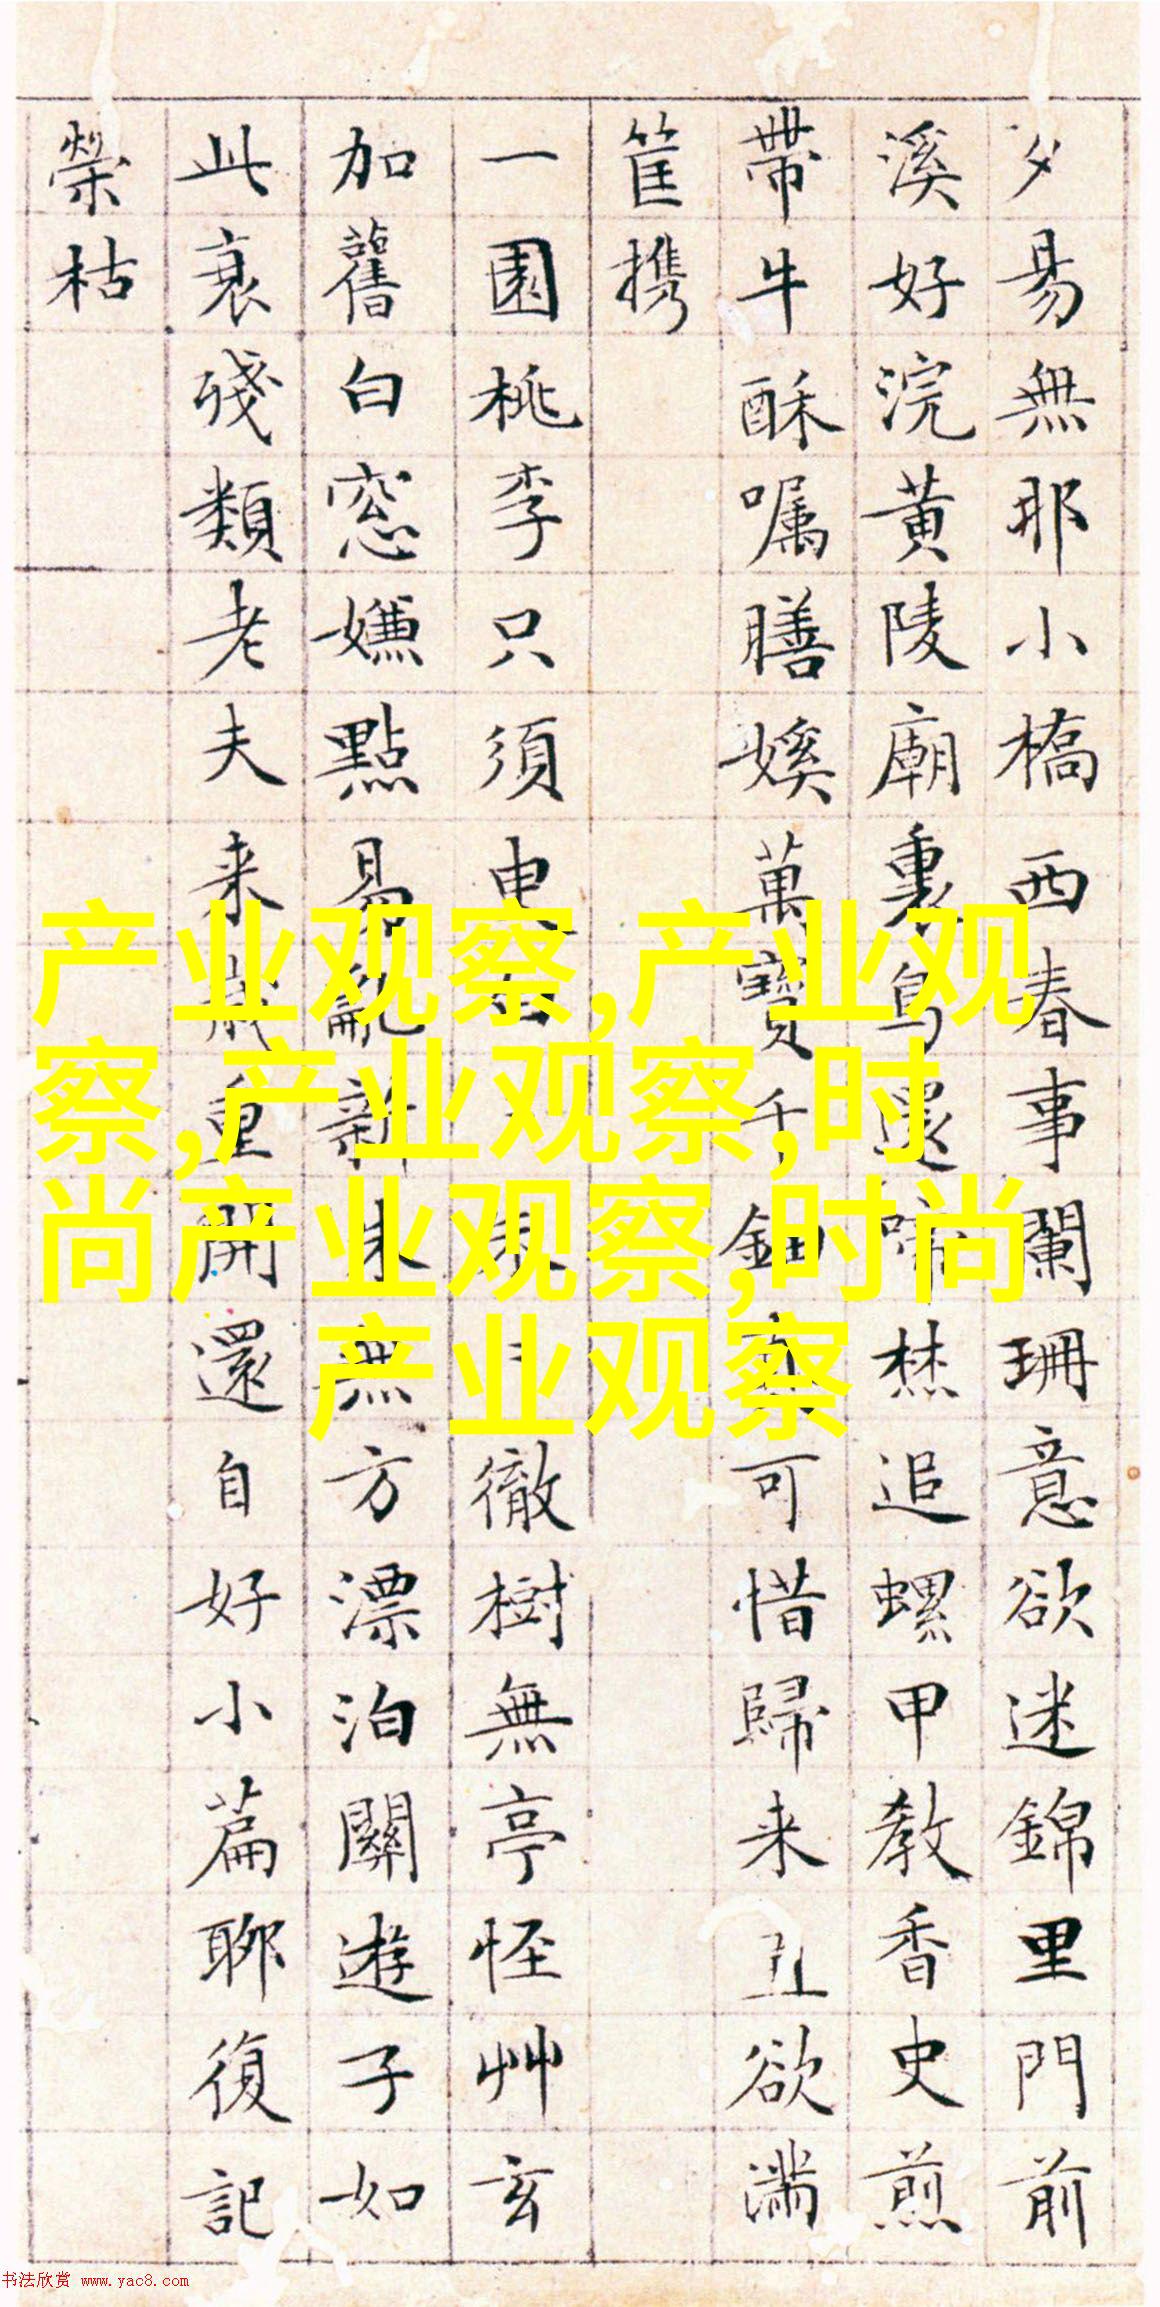 夕易無耶小橋西春事闌珊意欲迷錦里門前
溪好浣黃陵廟裏鳥還啼惄追螺甲教香史煎
帶牛酥嘱膳媄萬寶千鈿真可惜歸来丑欲滿
筐携
一園桃李只須臾白白朱朱徹樹無亭怪艸玄
加舊白窓嫌點易亂新朱無方漂泊關遊子如
此衰殘類老夫来歲重開還自好小篇聊復記
榮枯
产业观察,产业观
察,产业观察,时
尚产业观察,时尚
产业观察
书法欣赏 www.yac8.com